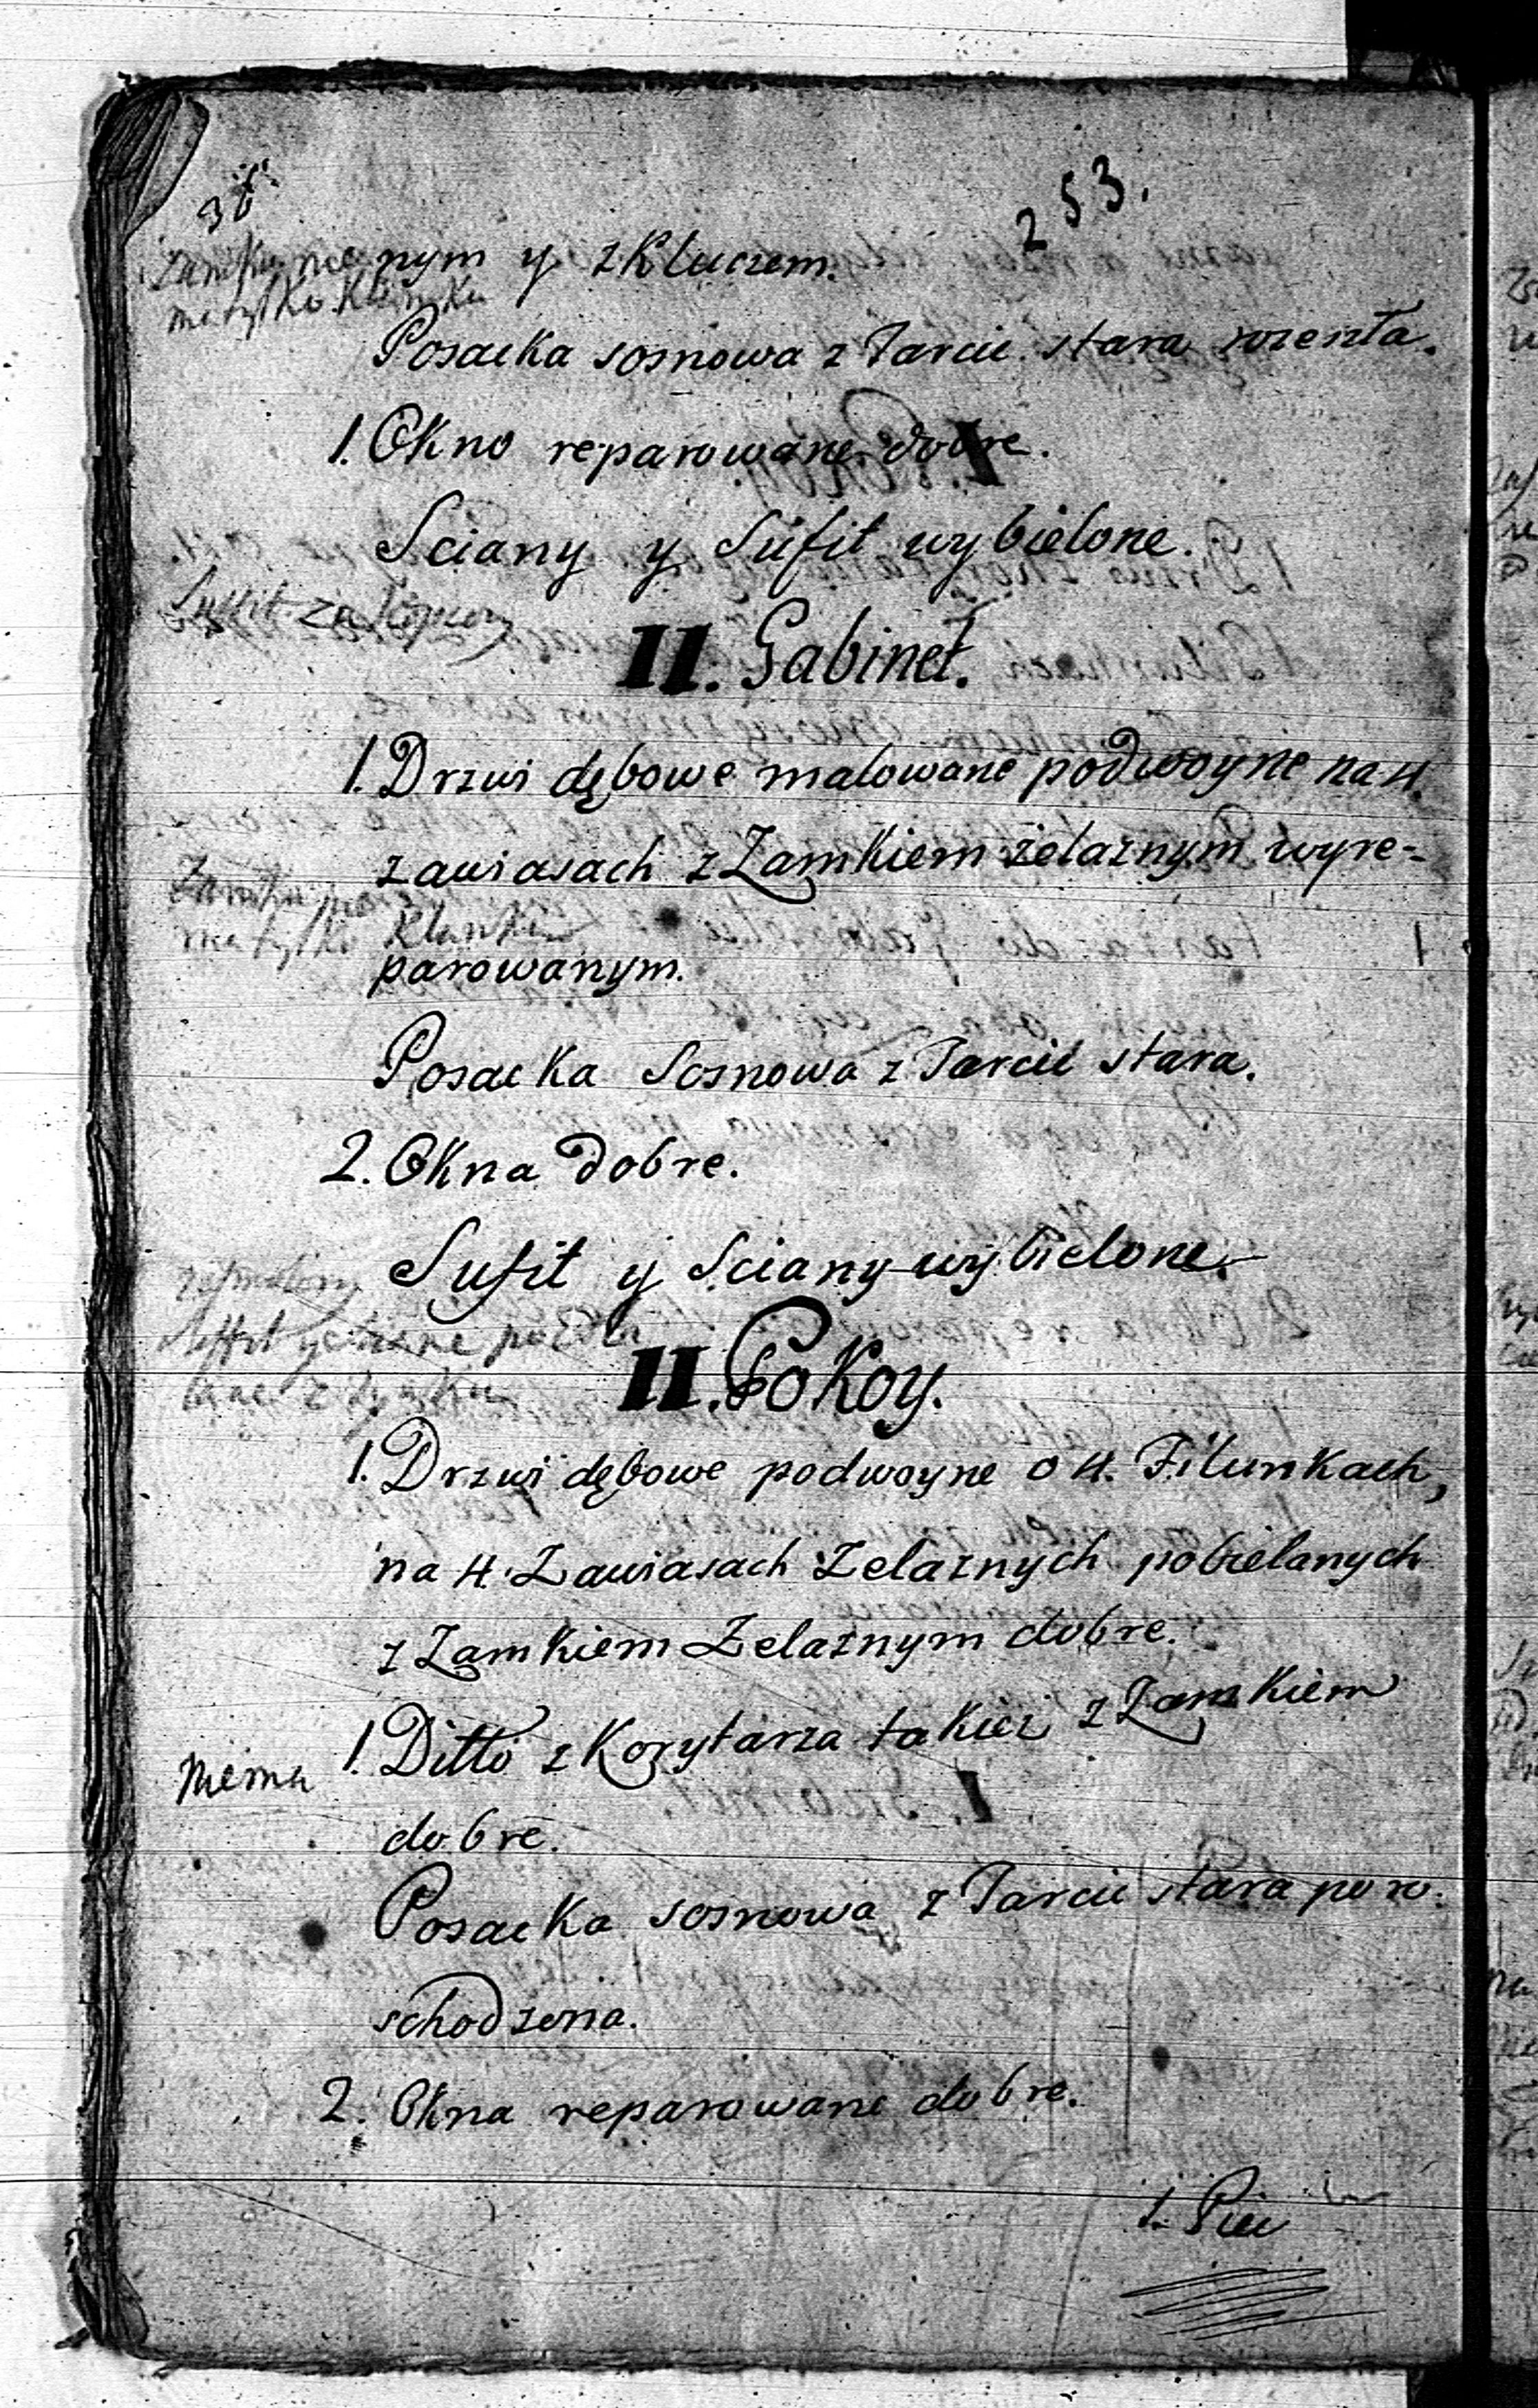 36
253.
nym y z Kluczem.
ma tylko Klamka
Posacka sosnowa z Tarcic stara zeszła.
1. Okno reparowane dobre.
Sciany y Sufit wybielone.
Suffit
II. Gabinet.
1. Drzwi dębowe malowane podwoyne na 4.
zawiasach z Zamkiem żelaznym wyre-
Zamku
ma tylko Klamka
parowanym.
Posacka Sosnowa z Tarcic stara.
2. Okna dobre.
Sufit y Sciany wybielone.
II. Pokoy.
1. Drzwi dębowe podwoyne o 4. Filunkach,
na 4. Zawiasach Zelaznych pobielanych
z Zamkiem Zelaznym dobre.
1. Ditto z Korytarza takiez z Zamkiem
niema
dobre.
Posacka sosnowa z Tarcic stara poro.
schodzona.
2. Okna reparowane dobre.
1. Piec